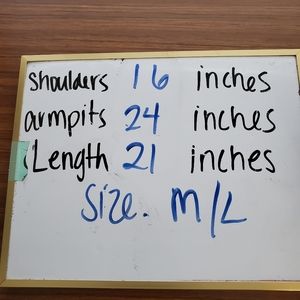 Shoulders 16 inches
armpits 24 inches
Length 21 inches
Size. M/L